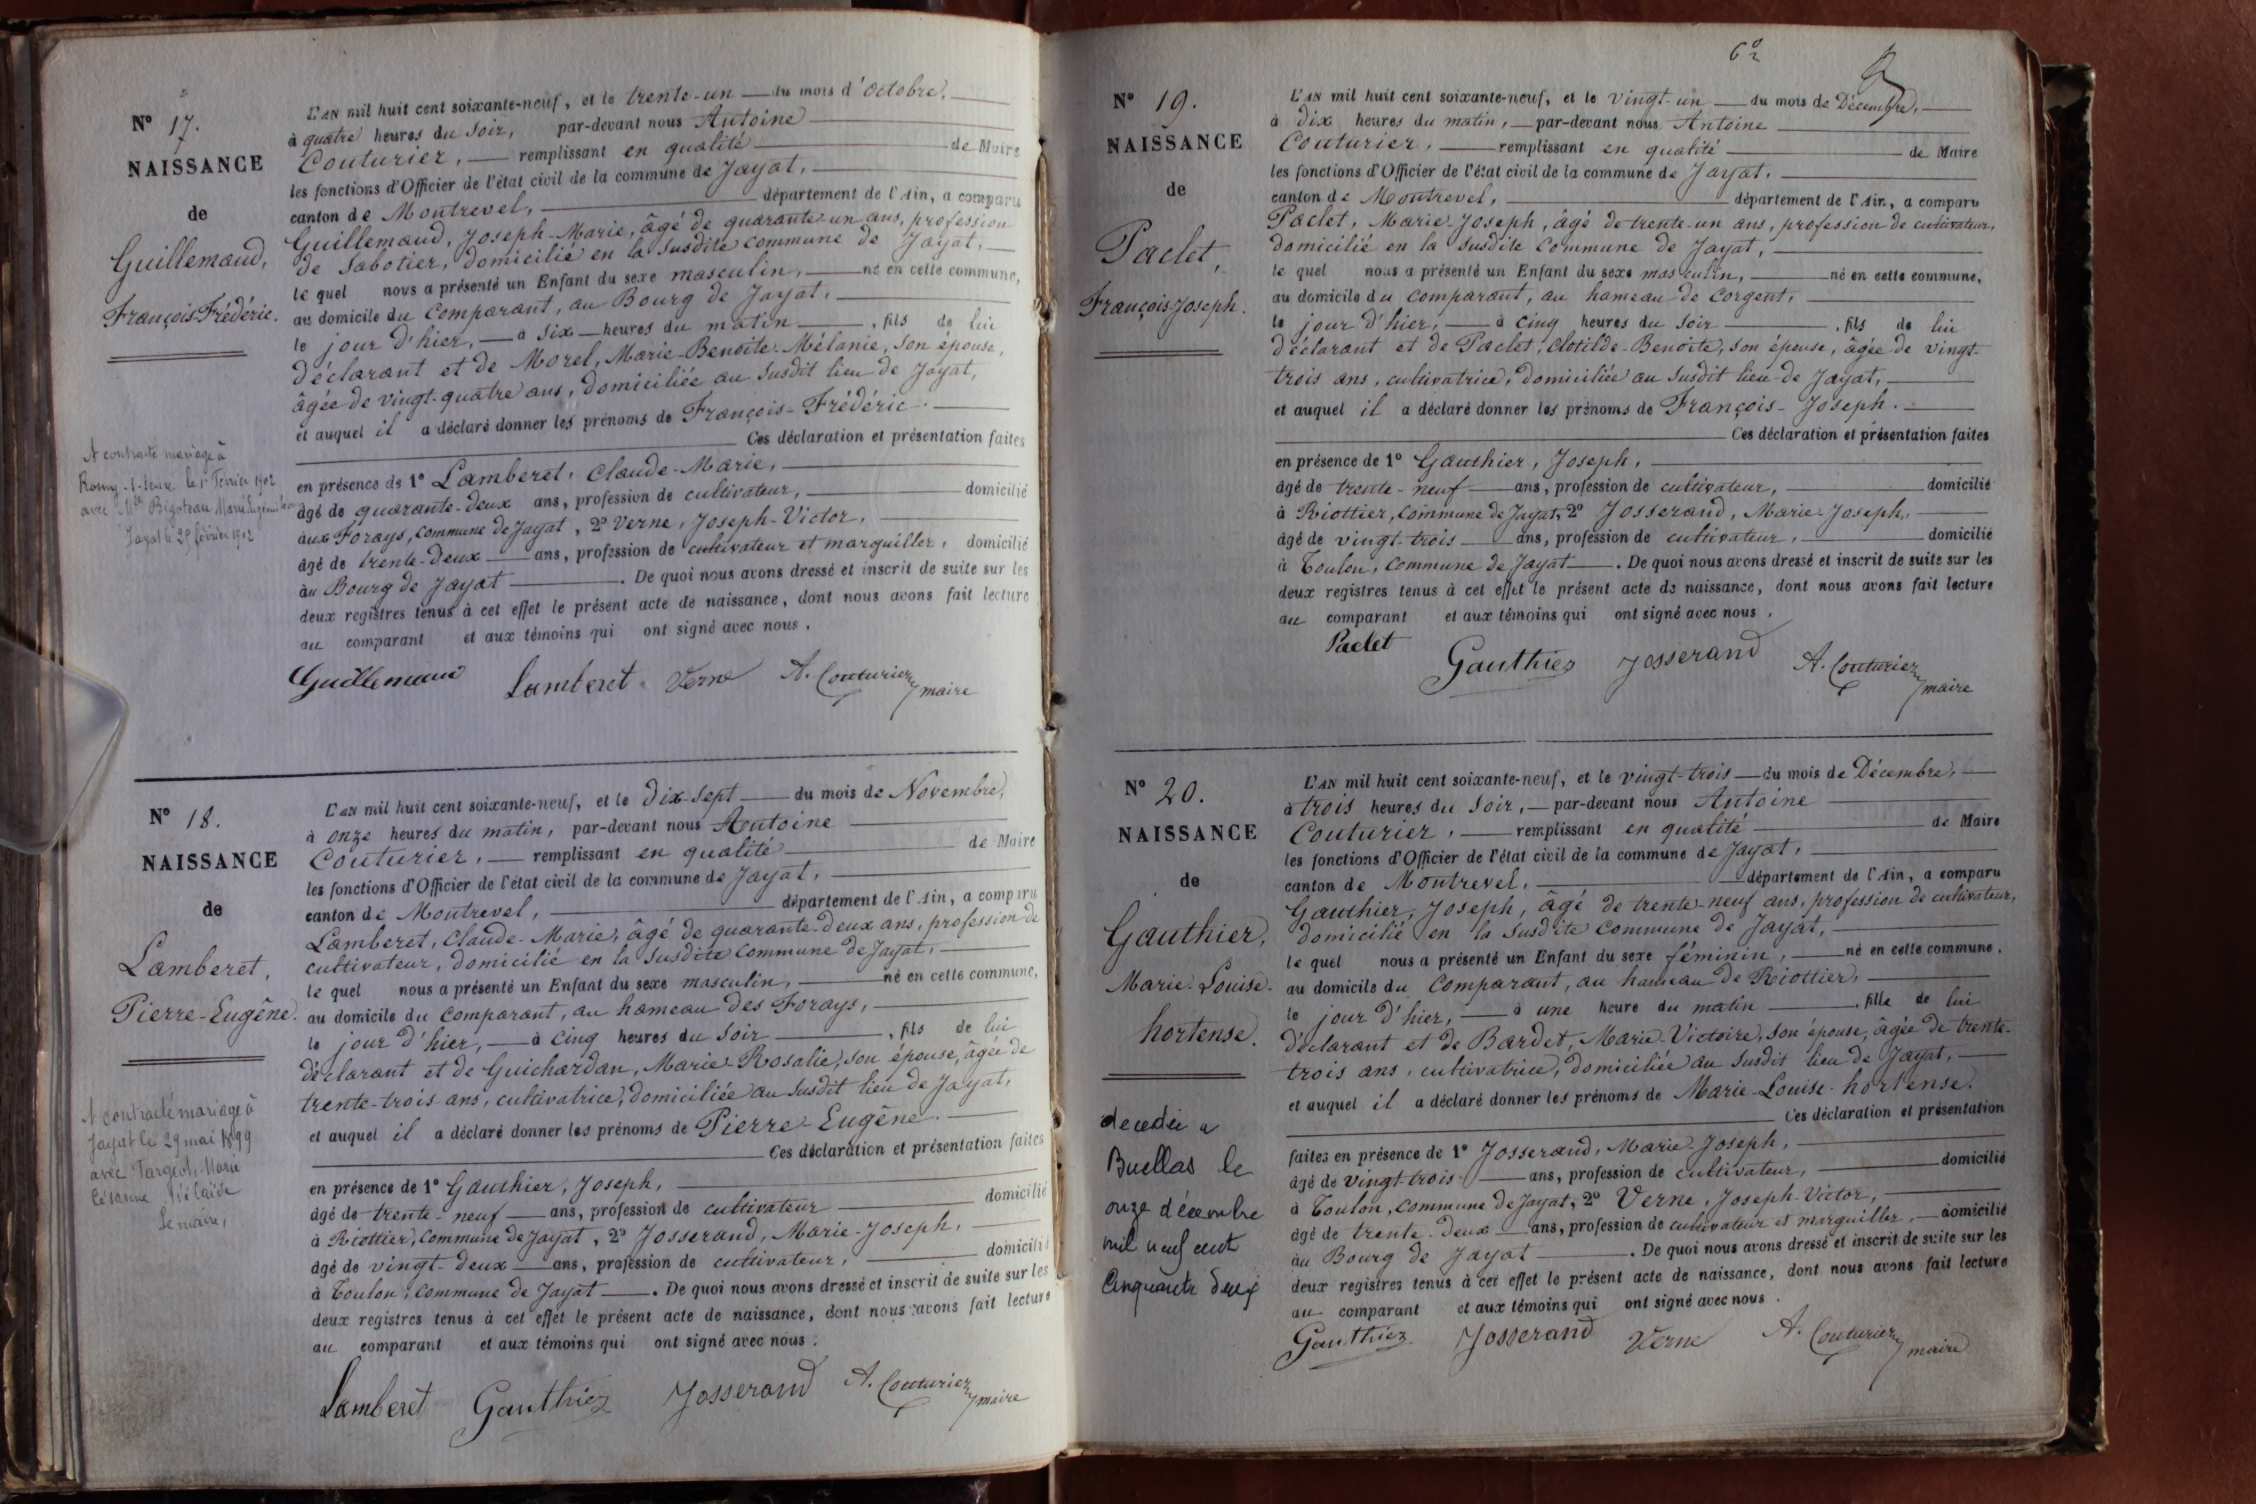 Nº 17.
NAISSANCE
de
Guillemaud,
François-Frédéric.
A contracté mariage à
le 1er Février 1902
avec Mlle Bigoteau Marie
Jayat le 25 février 1902
L'AN mil huit cent soixante-neuf, et le trente-un du mois d'Octobre,
à quatre heures du Soir, par-devant nous Antoine
Couturier, remplissant en qualité de Maire
les fonctions d'Officier de l'état civil de la commune de Jayat,
canton de Montrevel, département de l'Ain, a comparu
Guillemaud, Joseph-Marie, âgé de quarante-un ans, profession
de Sabotier, domicilié en la susdite commune de Jayat,
le quel nous a présenté un Enfant du sexe masculin, né en cette commune,
au domicile du comparant, au Bourg de Jayat,
le jour d'hier, à six heures du matin, fils de lui
déclarant et de Morel, Marie-Benoite-Mélanie, son épouse,
âgée de vingt-quatre ans, domiciliée au susdit lieu de Jayat,
et auquel il a déclaré donner les prénoms de François-Frédéric.
Ces déclaration et présentation faites
en présence de 1º Lamberet, Claude-Marie,
âgé de quarante-deux ans, profession de cultivateur, domicilié
aux Forays, commune de Jayat, 2º Verne, Joseph-Victor,
âgé de trente-deux ans, profession de cultivateur et marguiller, domicilié
au Bourg de Jayat. De quoi nous avons dressé et inscrit de suite sur les
deux registres tenus à cet effet le présent acte de naissance, dont nous avons fait lecture
au comparant et aux témoins qui ont signé avec nous.
Guillemaud Lamberet Verne A. Couturier maire
Nº 18.
NAISSANCE
de
Lamberet,
Pierre-Eugène.
A contracté mariage à
Jayat le 29 mai 1899
avec Targeot, Marie
Césarine Adélaïde
Le maire,
L'AN mil huit cent soixante-neuf, et le dix-sept du mois de Novembre,
à onze heures du matin, par-devant nous Antoine
Couturier, remplissant en qualité de Maire
les fonctions d'Officier de l'état civil de la commune de Jayat,
canton de Montrevel, département de l'Ain, a comparu
Lamberet, Claude-Marie, âgé de quarante-deux ans, profession de
cultivateur, domicilié en la susdite commune de Jayat,
le quel nous a présenté un Enfant du sexe masculin, né en cette commune,
au domicile du comparant, au hameau des Forays,
le jour d'hier, à cinq heures du soir, fils de lui
déclarant et de Guichardan, Marie Rosalie, son épouse, âgée de
trente-trois ans, cultivatrice, domiciliée au susdit lieu de Jayat,
et auquel il a déclaré donner les prénoms de Pierre-Eugène.
Ces déclaration et présentation faites
en présence de 1º Gauthier, Joseph,
âgé de trente-neuf ans, profession de cultivateur domicilié
à Riottier, commune de Jayat, 2º Josserand, Marie-Joseph,
âgé de vingt-deux ans, profession de cultivateur, domicilié
à Toulon, commune de Jayat. De quoi nous avons dressé et inscrit de suite sur les
deux registres tenus à cet effet le présent acte de naissance, dont nous avons fait lecture
au comparant et aux témoins qui ont signé avec nous.
Lamberet Gauthier Josserand A. Couturier maire
Nº 19.
NAISSANCE
de
Paclet,
François-Joseph.
L'AN mil huit cent soixante-neuf, et le vingt-un du mois de Décembre,
à dix heures du matin, par-devant nous Antoine
Couturier, remplissant en qualité de Maire
les fonctions d'Officier de l'état civil de la commune de Jayat,
canton de Montrevel, département de l'Ain, a comparu
Paclet, Marie-Joseph, âgé de trente-un ans, profession de cultivateur,
domicilié en la susdite commune de Jayat,
le quel nous a présenté un Enfant du sexe masculin, né en cette commune,
au domicile du comparant, au hameau de Corgent,
le jour d'hier, à cinq heures du soir, fils de lui
déclarant et de Paclet, Clotilde-Benoite, son épouse, âgée de vingt-
trois ans, cultivatrice, domiciliée au susdit lieu de Jayat,
et auquel il a déclaré donner les prénoms de François-Joseph.
Ces déclaration et présentation faites
en présence de 1º Gauthier, Joseph,
âgé de trente-neuf ans, profession de cultivateur, domicilié
à Riottier, commune de Jayat, 2º Josserand, Marie-Joseph,
âgé de vingt-trois ans, profession de cultivateur, domicilié
à Toulon, commune de Jayat. De quoi nous avons dressé et inscrit de suite sur les
deux registres tenus à cet effet le présent acte de naissance, dont nous avons fait lecture
au comparant et aux témoins qui ont signé avec nous.
Paclet Gauthier Josserand A. Couturier maire
Nº 20.
NAISSANCE
de
Gauthier,
Marie-Louise-
hortense.
decedée a
Buellas le
onze décembre
mil neuf cent
cinquante deux
L'AN mil huit cent soixante-neuf, et le vingt-trois du mois de Décembre,
à trois heures du soir, par-devant nous Antoine
Couturier, remplissant en qualité de Maire
les fonctions d'Officier de l'état civil de la commune de Jayat,
canton de Montrevel, département de l'Ain, a comparu
Gauthier, Joseph, âgé de trente-neuf ans, profession de cultivateur,
domicilié en la susdite commune de Jayat,
le quel nous a présenté un Enfant du sexe féminin, né en cette commune,
au domicile du comparant, au hameau de Riottier,
le jour d'hier, à une heure du matin, fille de lui
déclarant et de Bardet, Marie-Victoire, son épouse, âgée de trente-
trois ans, cultivatrice, domiciliée au susdit lieu de Jayat,
et auquel il a déclaré donner les prénoms de Marie-Louise-hortense.
Ces déclaration et présentation
faites en présence de 1º Josserand, Marie-Joseph,
âgé de vingt-trois ans, profession de cultivateur, domicilié
à Toulon, commune de Jayat, 2º Verne, Joseph-Victor,
âgé de trente-deux ans, profession de cultivateur et marguiller, domicilié
au Bourg de Jayat. De quoi nous avons dressé et inscrit de suite sur les
deux registres tenus à cet effet le présent acte de naissance, dont nous avons fait lecture
au comparant et aux témoins qui ont signé avec nous.
Gauthier Josserand Verne A. Couturier maire